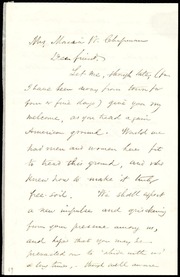 Mrs. Maria W. Chapman
Dear friend,
Let me, though late, (for
I have been away from town
four or five days) give you my
welcome, as you tread again
American ground. Would we
had men and women have feet
to tread this ground, as who
knew how to make it truly
free soil. We shall expect
a new impulse and quickening
from your presence among us,
and hope that you may be
to "abide with us"
a long time. And will